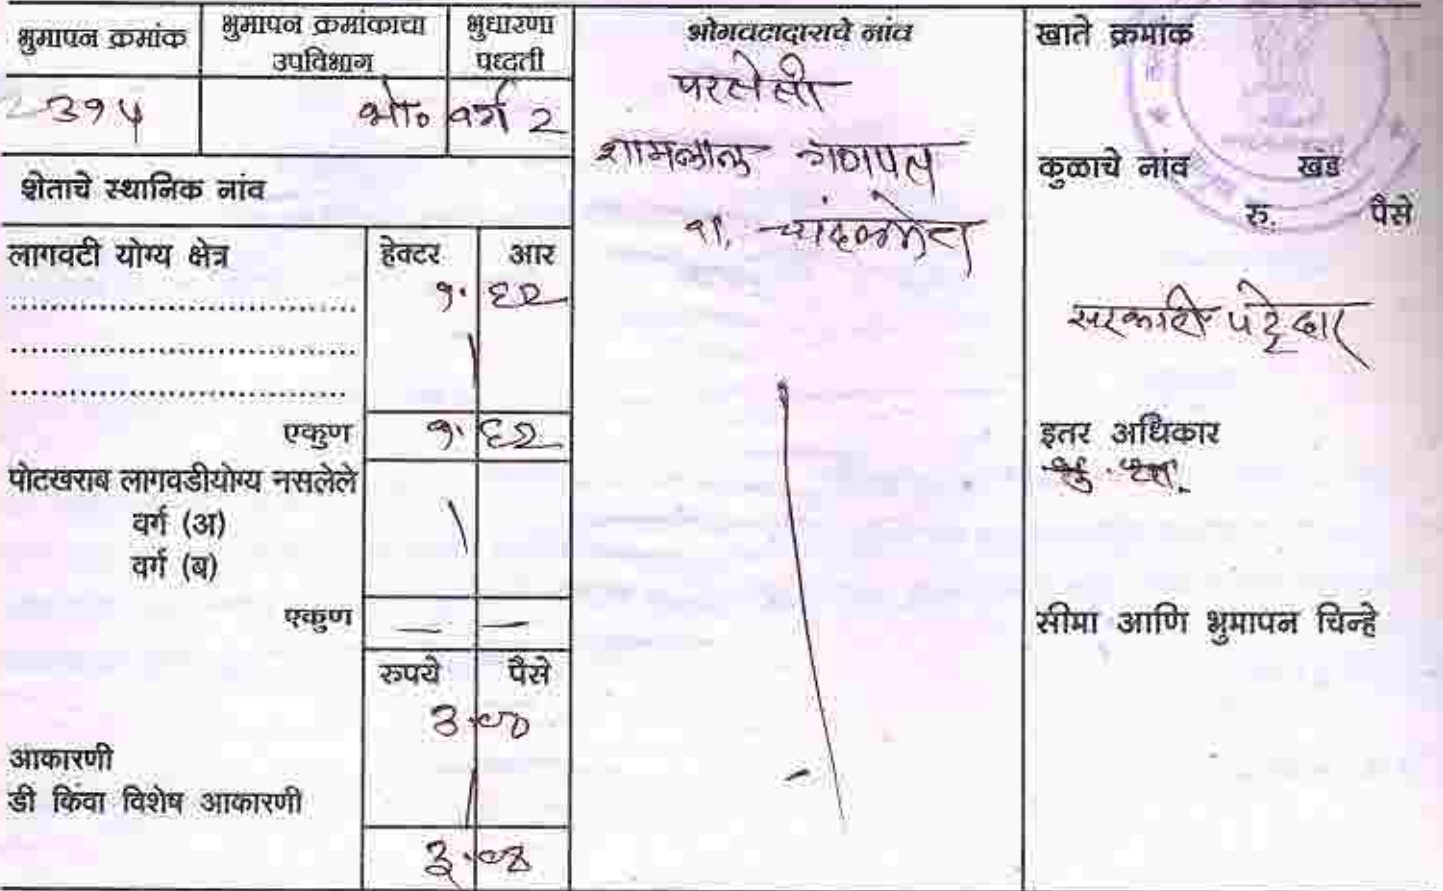 भुमापन क्रमांक
भुमापन क्रमांकाचा उपविभाग
भुधारणा पध्दती
३१५
भो० वर्ग २
शेताचे स्थानिक नांव
लागवटी योग्य क्षेत्र
हेक्टर आर
१. ६२
एकुण १. ६२
पोटखराब लागवडीयोग्य नसलेले
वर्ग (अ)
वर्ग (ब)
एकुण — —
रुपये पैसे
आकारणी
डी किंवा विशेष आकारणी
भोगवटादाराचे नांव
शामलाल गणपत
रा.
खाते क्रमांक
कुळाचे नांव खंड
रु. पैसे
सरकारी पट्टेदार
इतर अधिकार
सीमा आणि भुमापन चिन्हे